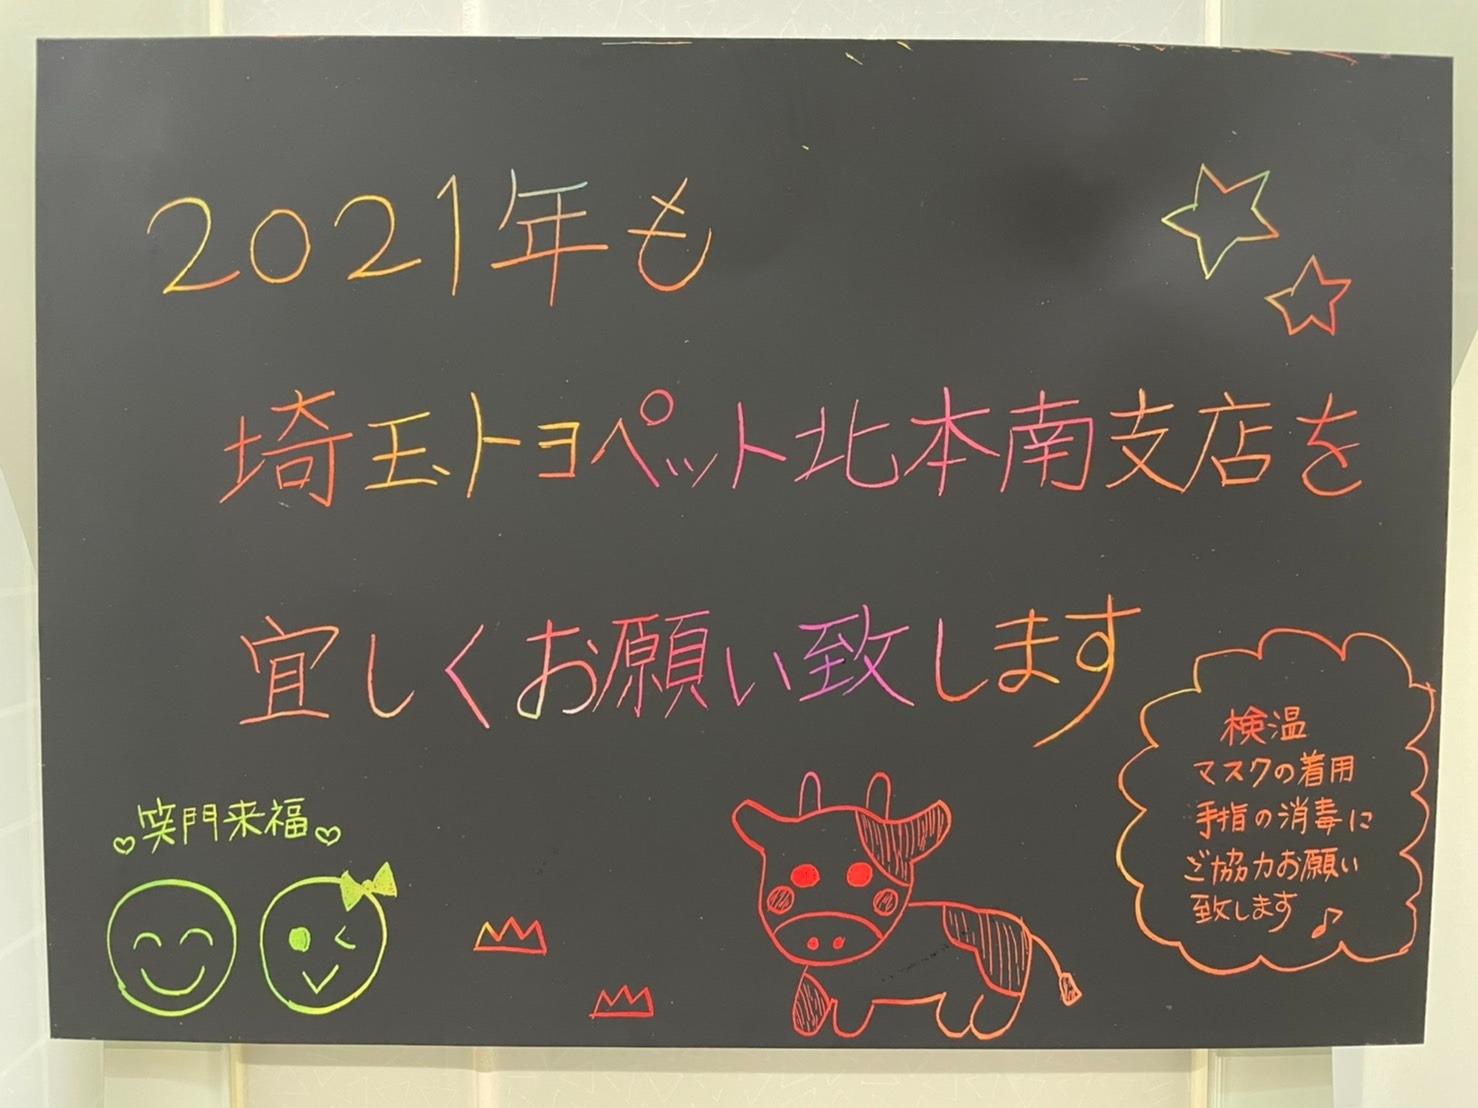 2021年も
埼玉トヨペット北本南支店を
宜しくお願い致します
笑門来福
検温
マスクの着用
手指の消毒に
ご協力お願い
致します♪